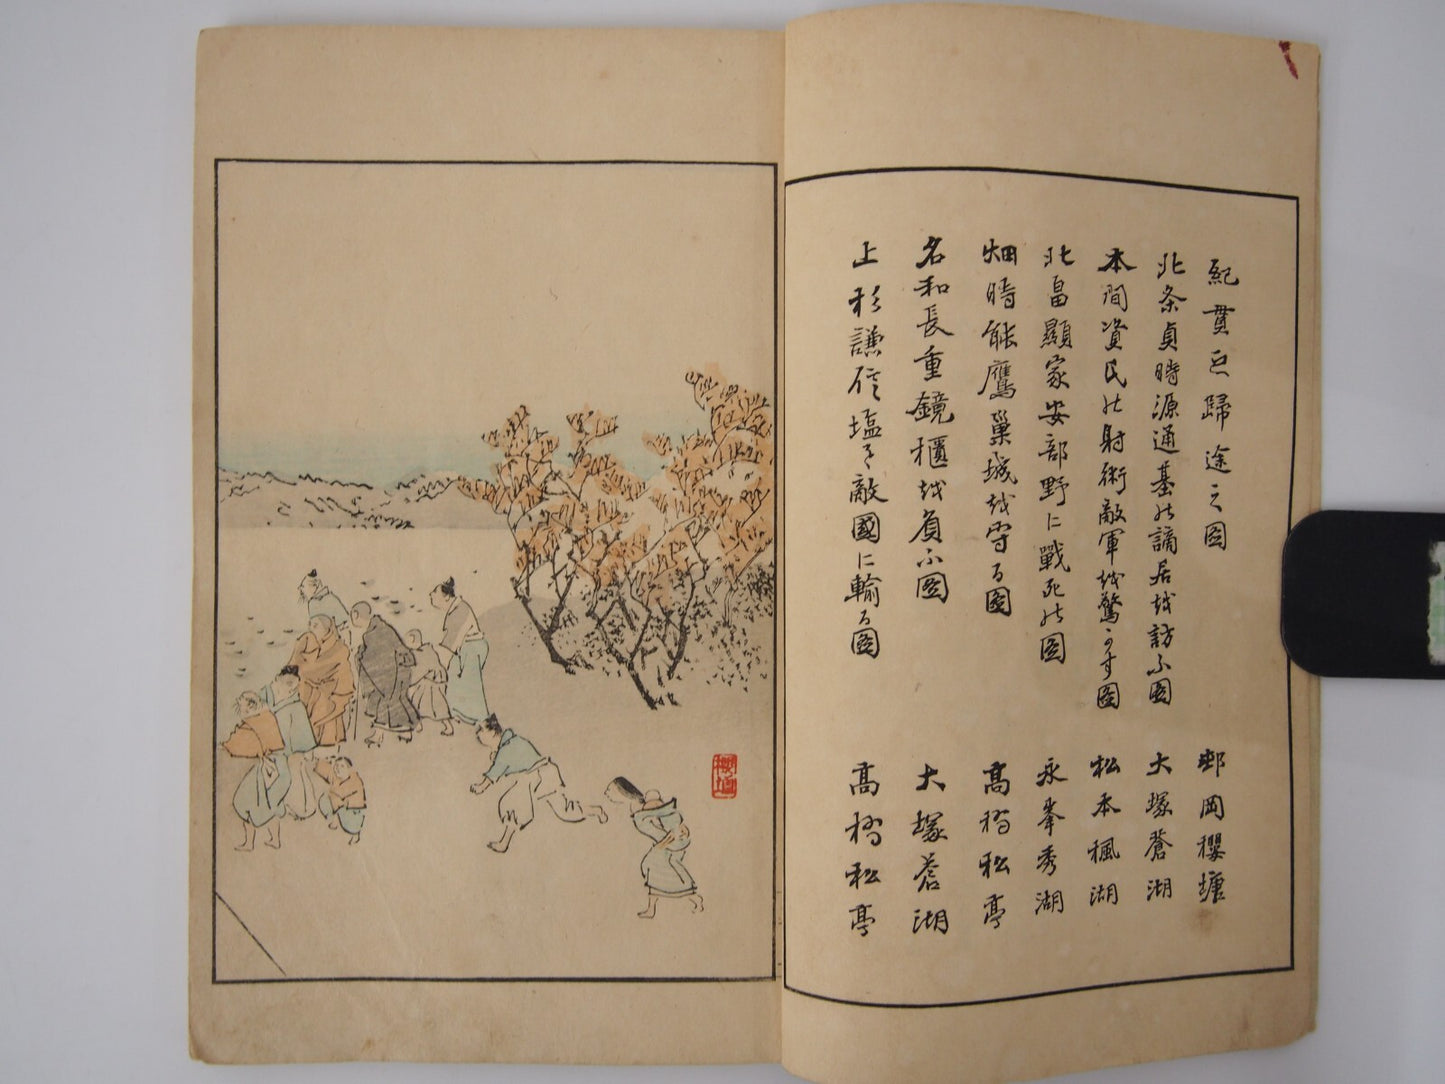 紀貫之歸途之圖 邨岡櫻塘
北条貞時源通基の謫居を訪ふ圖 大塚蒼湖
本間資氏の射術敵軍を驚かす圖 松本楓湖
北畠顯家安部野に戰死の圖 永峯秀湖
畑時能鷹巣城を守る圖 高橋松亭
名和長重鎧櫃を負ふ圖 大塚蒼湖
上杉謙信塩を敵國に輸る圖 高橋松亭
櫻塘